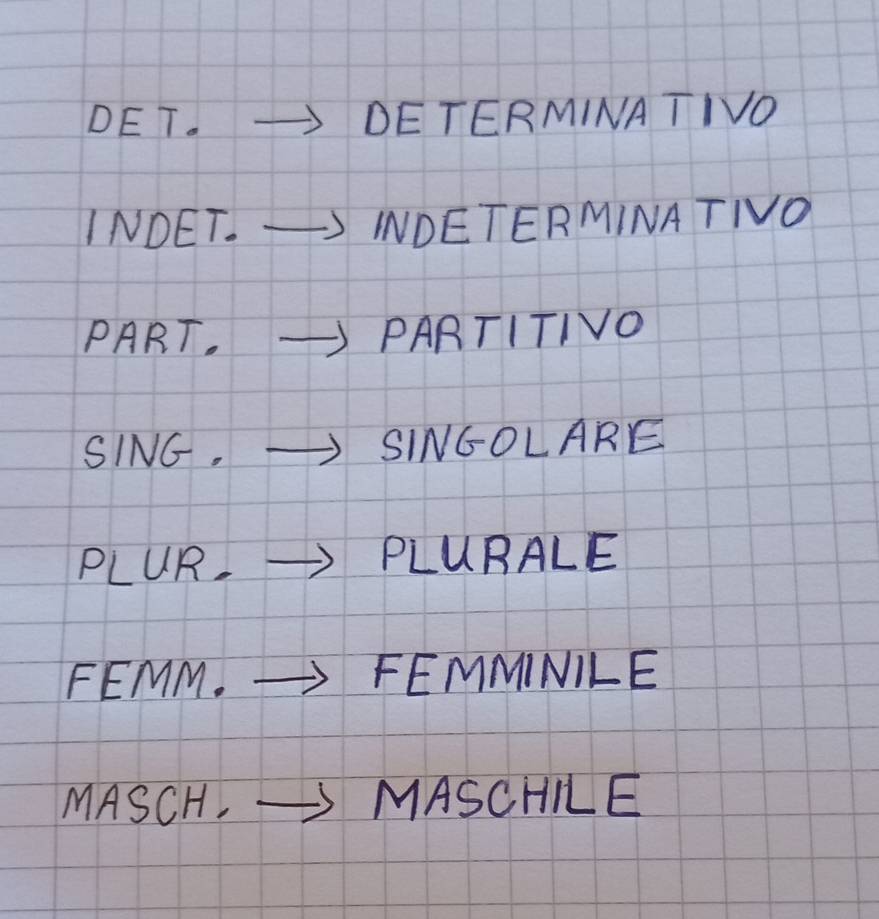 DET. → DETERMINATIVO
INDET. → INDETERMINATIVO
PART. → PARTITIVO
SING. → SINGOLARE
PLUR. → PLURALE
FEMM. → FEMMINILE
MASCH. → MASCHILE